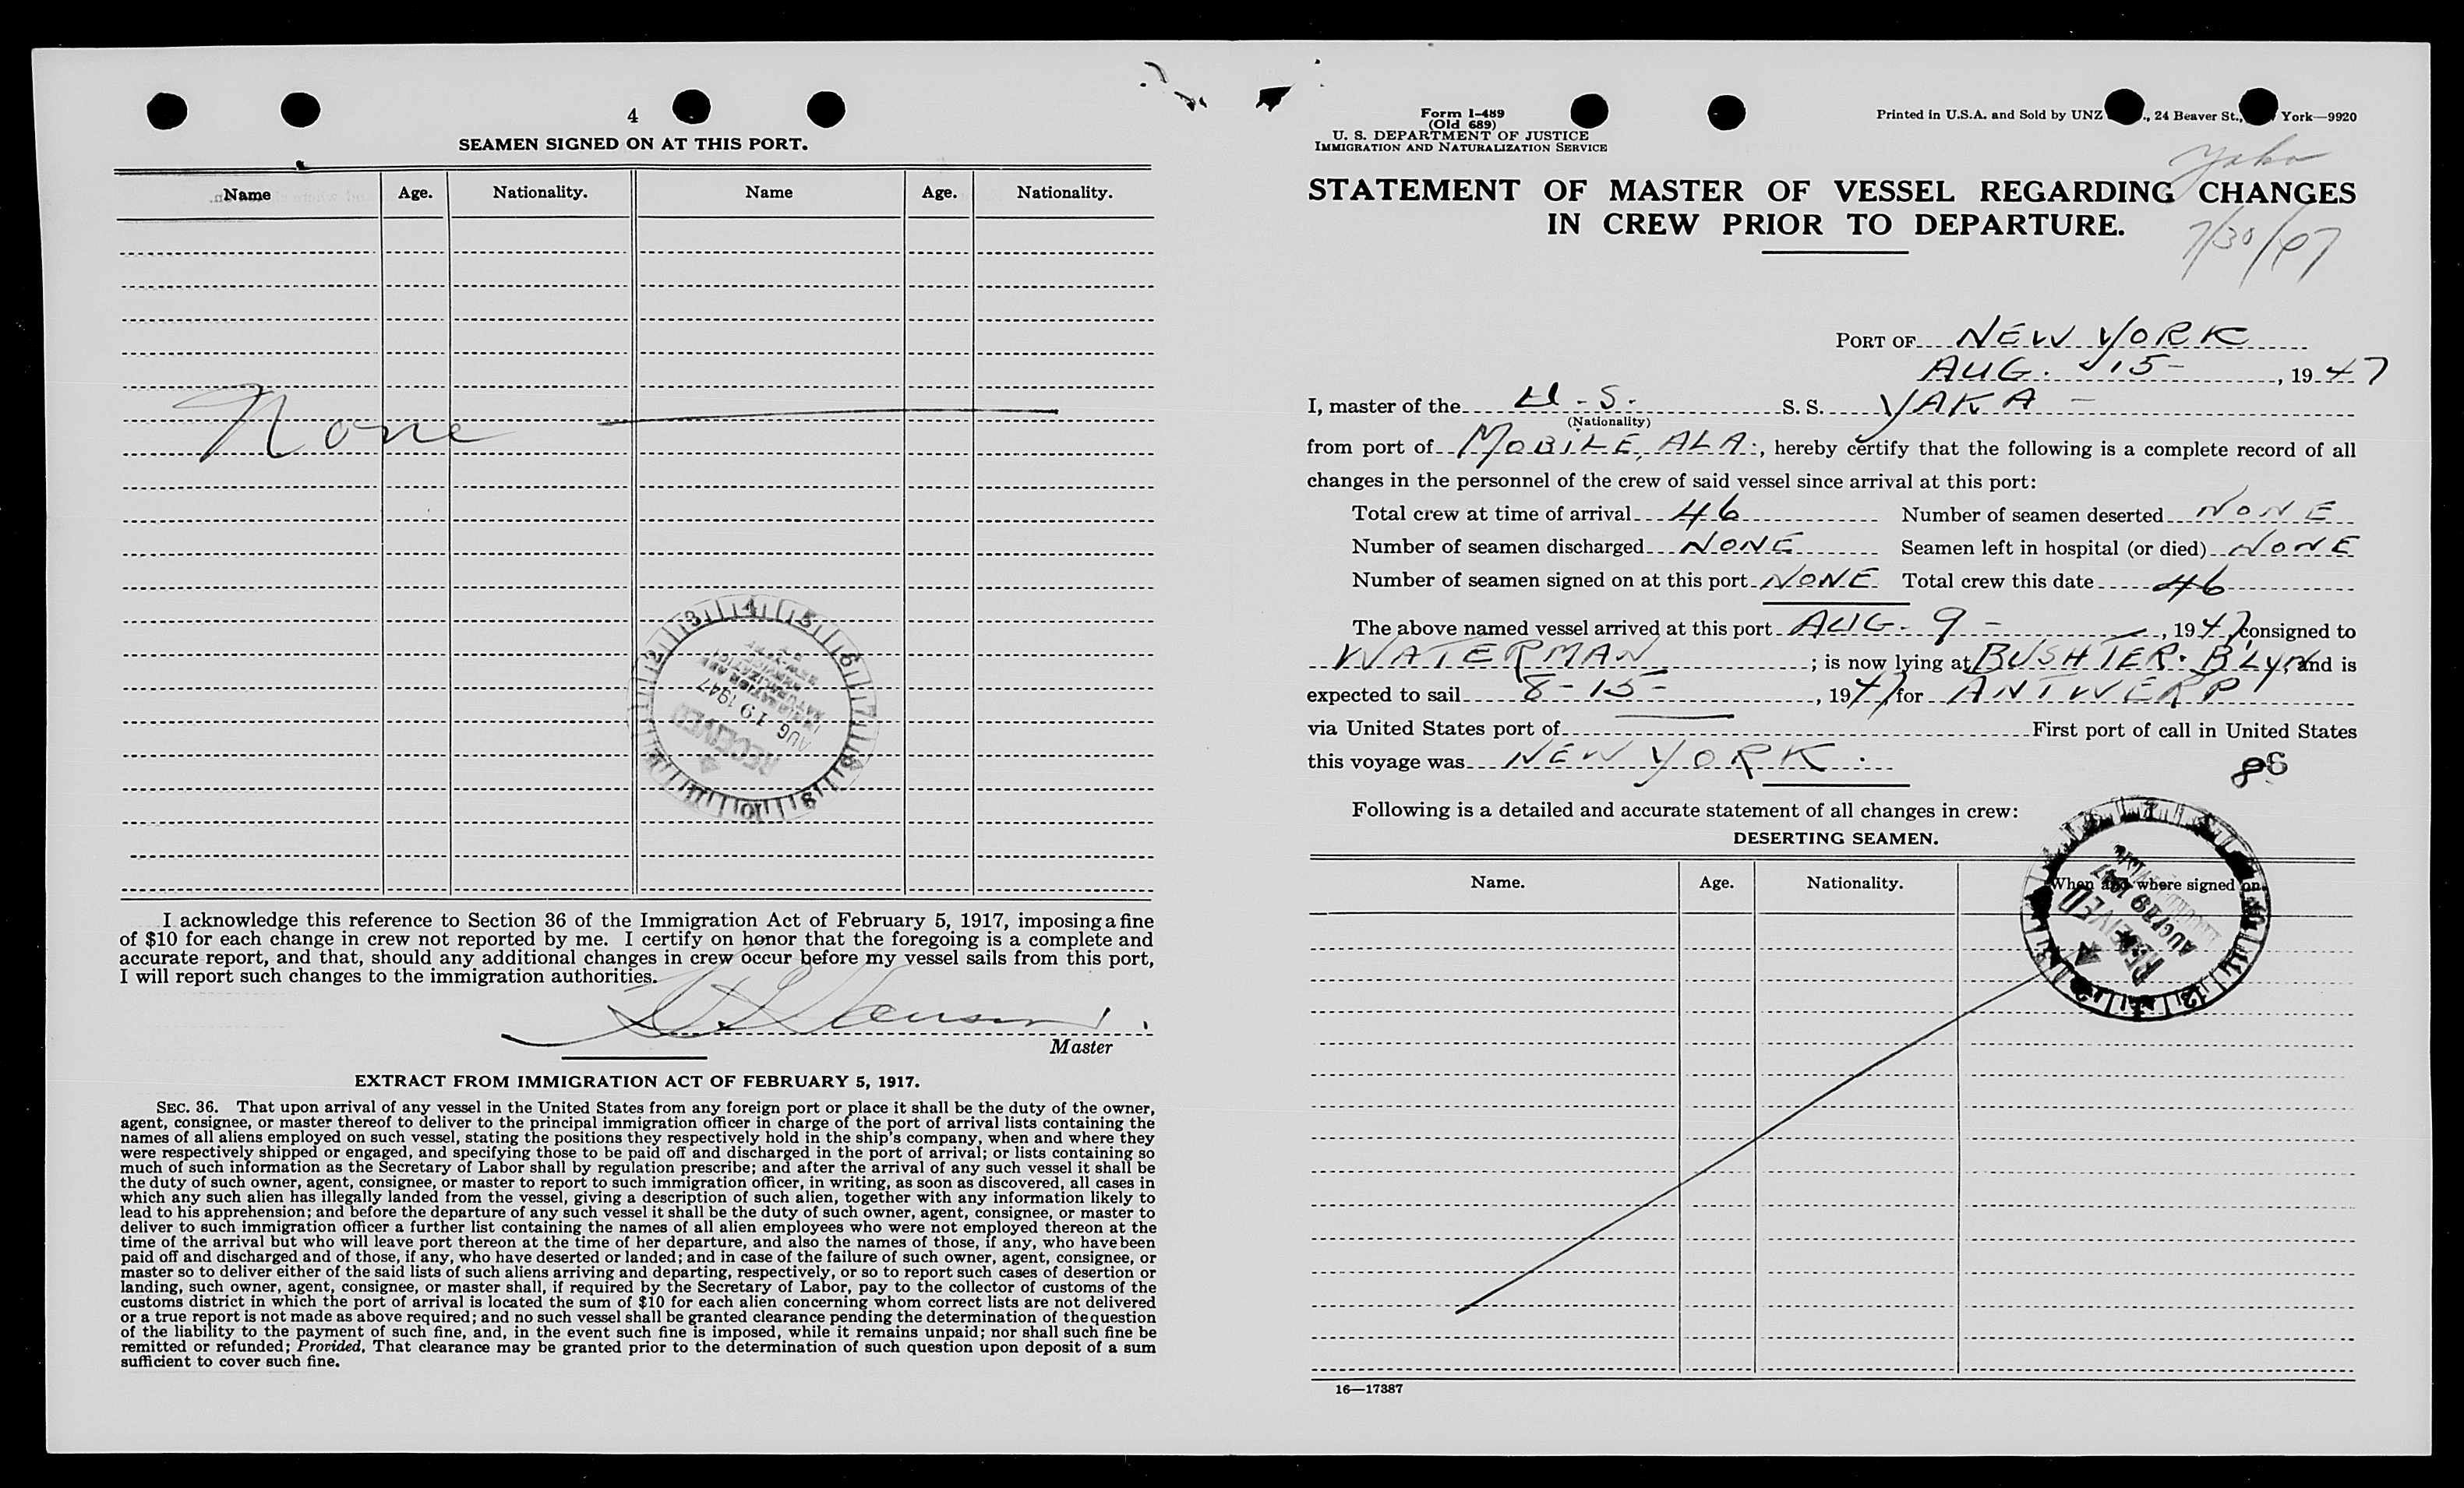 4
SEAMEN SIGNED ON AT THIS PORT.
Name Age. Nationality. Name Age. Nationality.
None
RECEIVED
AUG 19 1947
I acknowledge this reference to Section 36 of the Immigration Act of February 5, 1917, imposing a fine
of $10 for each change in crew not reported by me. I certify on honor that the foregoing is a complete and
accurate report, and that, should any additional changes in crew occur before my vessel sails from this port,
I will report such changes to the immigration authorities.
Master
EXTRACT FROM IMMIGRATION ACT OF FEBRUARY 5, 1917.
SEC. 36. That upon arrival of any vessel in the United States from any foreign port or place it shall be the duty of the owner,
agent, consignee, or master thereof to deliver to the principal immigration officer in charge of the port of arrival lists containing the
names of all aliens employed on such vessel, stating the positions they respectively hold in the ship's company, when and where they
were respectively shipped or engaged, and specifying those to be paid off and discharged in the port of arrival; or lists containing so
much of such information as the Secretary of Labor shall by regulation prescribe; and after the arrival of any such vessel it shall be
the duty of such owner, agent, consignee, or master to report to such immigration officer, in writing, as soon as discovered, all cases in
which any such alien has illegally landed from the vessel, giving a description of such alien, together with any information likely to
lead to his apprehension; and before the departure of any such vessel it shall be the duty of such owner, agent, consignee, or master to
deliver to such immigration officer a further list containing the names of all alien employees who were not employed thereon at the
time of the arrival but who will leave port thereon at the time of her departure, and also the names of those, if any, who have been
paid off and discharged and of those, if any, who have deserted or landed; and in case of the failure of such owner, agent, consignee, or
master so to deliver either of the said lists of such aliens arriving and departing, respectively, or so to report such cases of desertion or
landing, such owner, agent, consignee, or master shall, if required by the Secretary of Labor, pay to the collector of customs of the
customs district in which the port of arrival is located the sum of $10 for each alien concerning whom correct lists are not delivered
or a true report is not made as above required; and no such vessel shall be granted clearance pending the determination of the question
of the liability to the payment of such fine, and, in the event such fine is imposed, while it remains unpaid; nor shall such fine be
remitted or refunded; Provided, That clearance may be granted prior to the determination of such question upon deposit of a sum
sufficient to cover such fine.
Form I-489
(Old 689)
U. S. DEPARTMENT OF JUSTICE
IMMIGRATION AND NATURALIZATION SERVICE
Printed in U.S.A. and Sold by UNZ ., 24 Beaver St., York—9920
STATEMENT OF MASTER OF VESSEL REGARDING CHANGES
IN CREW PRIOR TO DEPARTURE.
PORT OF NEW YORK
AUG. 15- , 1947
I, master of the U.S. S. S. YAKA -
(Nationality)
from port of MOBILE, ALA., hereby certify that the following is a complete record of all
changes in the personnel of the crew of said vessel since arrival at this port:
Total crew at time of arrival 46 Number of seamen deserted NONE
Number of seamen discharged NONE Seamen left in hospital (or died) NONE
Number of seamen signed on at this port NONE Total crew this date 46
The above named vessel arrived at this port AUG. 9 - , 1947, consigned to
WATERMAN ; is now lying at BUSH TER. BLYN, and is
expected to sail 8-15- , 1947, for ANTWERP
via United States port of — First port of call in United States
this voyage was NEW YORK.
Following is a detailed and accurate statement of all changes in crew:
DESERTING SEAMEN.
Name. Age. Nationality. When and where signed on.
RECEIVED
AUG 19 1947
16—17387